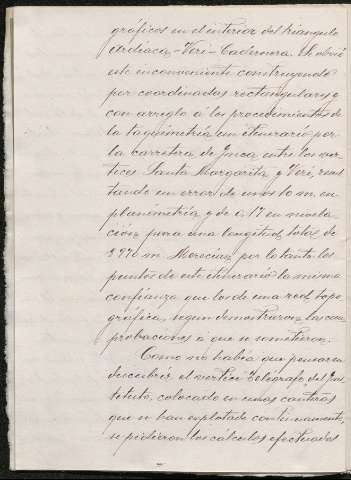 gráficos en el interior del triangulo
Ardiaca-Veri-Cadernera. Se obvió
este inconveniente construyendo
por coordenadas rectangulares y
con arreglo á los procedimientos de
la taquimetría un itinerario por
la carretera de Inca entre los vér-
tices Santa Margarita y Veri, resul
tando un error de unos 10 m. en
planimetría y de 0,17 en nivela-
ción, para una longitud total de
3970 m. Merecían por lo tanto los
puntos de este itinerario la misma
confianza que los de una red topo
gráfica, segun demostraron las com
probaciones á que se sometieron.
Como no había que pensar en
descubrir el vertice Telégrafo, del Ins
tituto, colocado en unas canteras
que se han explotado continuamente,
se pidieron los cálculos efectuados